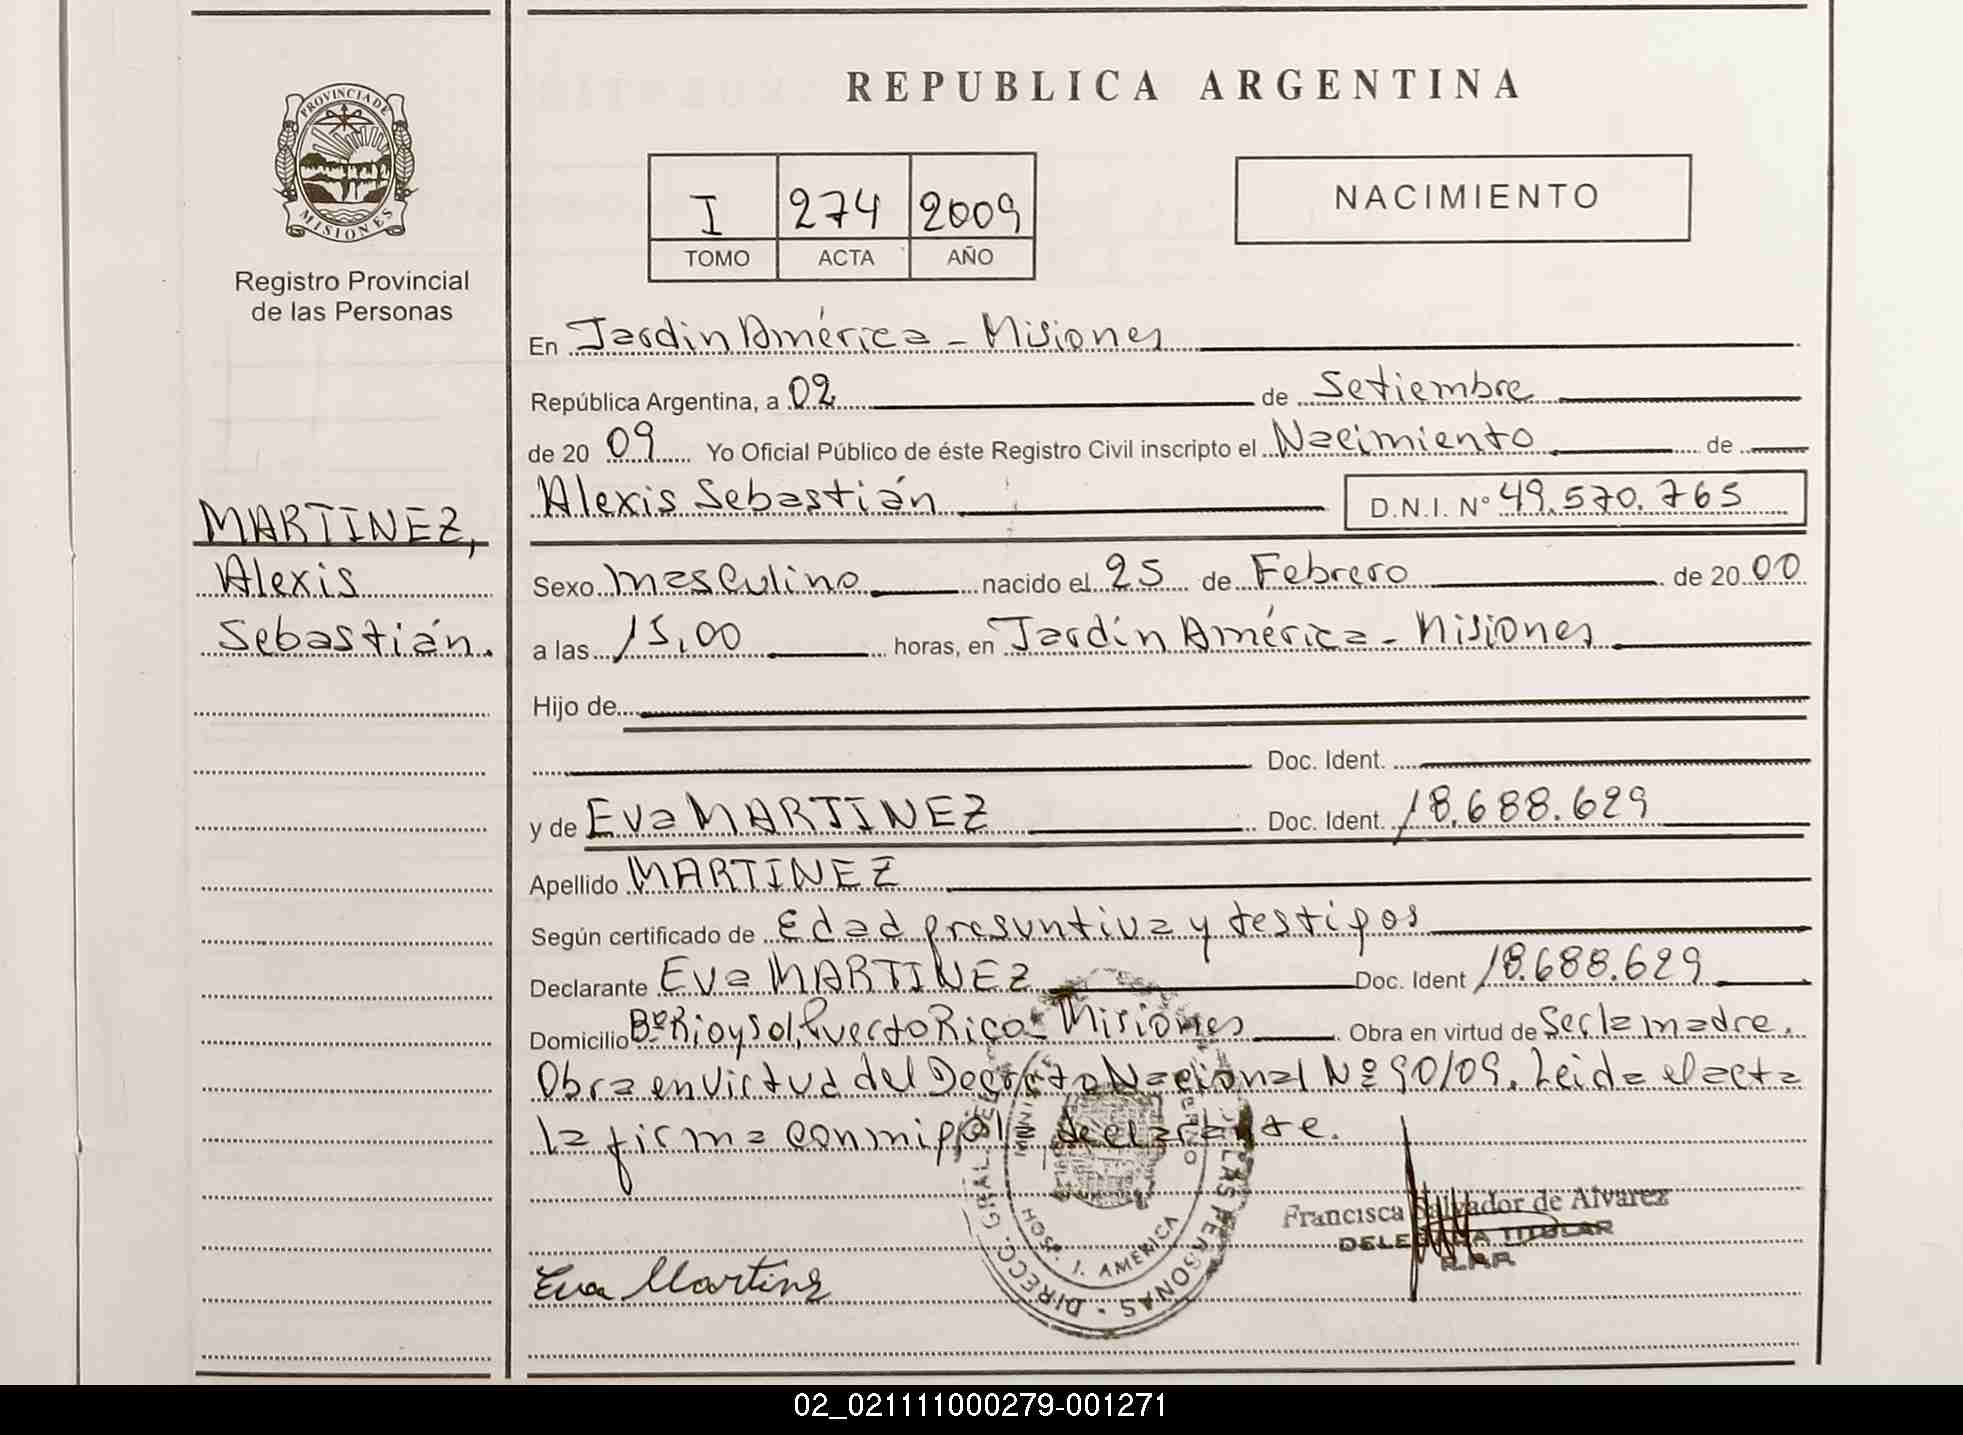 PROVINCIA DE
MISIONES
Registro Provincial
de las Personas
MARTINEZ,
Alexis
Sebastián.
REPUBLICA ARGENTINA
I 274 2009
TOMO ACTA AÑO
NACIMIENTO
En Jardin América - Misiones
República Argentina, a 02 de Setiembre
de 20 09 Yo Oficial Público de éste Registro Civil inscripto el Nacimiento de
Alexis Sebastián D.N.I. N° 49.570.765
Sexo masculino nacido el 25 de Febrero de 20 00
a las 15,00 horas, en Jardín América - Misiones
Hijo de
Doc. Ident.
y de Eva MARTINEZ Doc. Ident. 18.688.629
Apellido MARTINEZ
Según certificado de Edad presuntiva y testigos
Declarante Eva MARTINEZ Doc. Ident 18.688.629
Domicilio Bº Rio y sol, Puerto Rico - Misiones. Obra en virtud de Ser la madre.
Obra en virtud del Decreto Nacional Nº 90/09. Leida el acta
la firma conmigo declarante.
DIRECC. GRAL. DE LAS PERSONAS
J. AMERICA
Francisca Salvador de Alvarez
DELEGADA TITULAR
R.P.P.
Eva Martinz
02_021111000279-001271